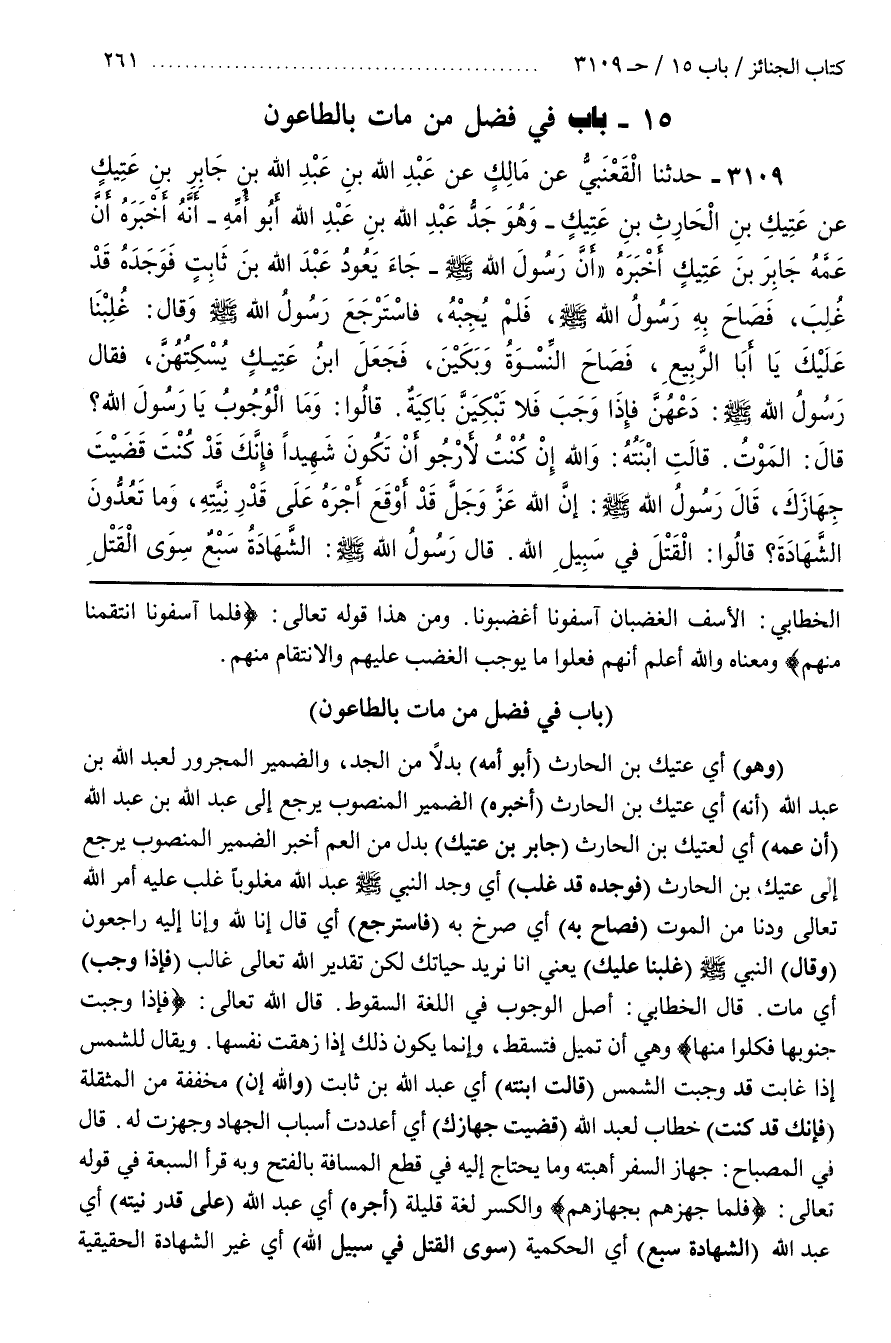 كتاب الجنائز / باب ١٥ / حـ ٣١٠٩ ............................................ ٢٦١
١٥ ـ باب في فضل من مات بالطاعون
٣١٠٩ ـ حدثنا الْقَعْنَبيُّ عن مَالِكٍ عن عَبْدِ الله بنِ عَبْدِ الله بنِ جَابِرِ بنِ عَتِيكٍ
عن عَتِيكِ بنِ الْحَارِثِ بنِ عَتِيكٍ ـ وَهُوَ جَدُّ عَبْدِ الله بنِ عَبْدِ الله أَبُو أُمِّهِ ـ أَنَّهُ أَخْبَرَهُ أَنَّ
عَمَّهُ جَابِرَ بنَ عَتِيكٍ أَخْبَرَهُ «أَنَّ رَسُولَ الله ﷺ ـ جَاءَ يَعُودُ عَبْدَ الله بنَ ثَابِتٍ فَوَجَدَهُ قَدْ
غُلِبَ، فَصَاحَ بِهِ رَسُولُ الله ﷺ، فَلَمْ يُجِبْهُ، فاسْتَرْجَعَ رَسُولُ الله ﷺ وَقال: غُلِبْنَا
عَلَيْكَ يَا أَبَا الرَّبِيعِ، فَصَاحَ النِّسْوَةُ وَبَكَيْنَ، فَجَعَلَ ابنُ عَتِيكٍ يُسْكِتُهُنَّ، فقال
رَسُولُ الله ﷺ: دَعْهُنَّ فإذَا وَجَبَ فَلا تَبْكِيَنَّ بَاكِيَةٌ. قالُوا: وَمَا الْوُجُوبُ يَا رَسُولَ الله؟
قالَ: المَوْتُ. قالَتِ ابْنَتُهُ: وَالله إنْ كُنْتُ لأرْجُو أنْ تَكُونَ شَهِيداً فإنَّكَ قَدْ كُنْتَ قَضَيْتَ
جِهازَكَ، قَالَ رَسُولُ الله ﷺ: إنَّ الله عَزَّ وَجَلَّ قَدْ أَوْقَعَ أَجْرَهُ عَلَى قَدْرِ نِيَّتِهِ، وَما تَعُدُّونَ
الشَّهَادَةَ؟ قالُوا: الْقَتْلَ في سَبِيلِ الله. قال رَسُولُ الله ﷺ: الشَّهَادَةُ سَبْعٌ سِوَى الْقَتْلِ
الخطابي: الأسف الغضبان آسفونا أغضبونا. ومن هذا قوله تعالى: ﴿فلما آسفونا انتقمنا
منهم﴾ ومعناه والله أعلم أنهم فعلوا ما يوجب الغضب عليهم والانتقام منهم.
(باب في فضل من مات بالطاعون)
(وهو) أي عتيك بن الحارث (أبو أمه) بدلاً من الجد، والضمير المجرور لعبد الله بن
عبد الله (أنه) أي عتيك بن الحارث (أخبره) الضمير المنصوب يرجع إلى عبد الله بن عبد الله
(أن عمه) أي لعتيك بن الحارث (جابر بن عتيك) بدل من العم أخبر الضمير المنصوب يرجع
إلى عتيك، بن الحارث (فوجده قد غلب) أي وجد النبي ﷺ عبد الله مغلوباً غلب عليه أمر الله
تعالى ودنا من الموت (فصاح به) أي صرخ به (فاسترجع) أي قال إنا لله وإنا إليه راجعون
(وقال) النبي ﷺ (غلبنا عليك) يعني انا نريد حياتك لكن تقدير الله تعالى غالب (فإذا وجب)
أي مات. قال الخطابي: أصل الوجوب في اللغة السقوط. قال الله تعالى: ﴿فإذا وجبت
جنوبها فكلوا منها﴾ وهي أن تميل فتسقط، وإنما يكون ذلك إذا زهقت نفسها. ويقال للشمس
إذا غابت قد وجبت الشمس (قالت ابنته) أي عبد الله بن ثابت (والله إن) مخففة من المثقلة
(فإنك قد كنت) خطاب لعبد الله (قضيت جهازك) أي أعددت أسباب الجهاد وجهزت له. قال
في المصباح: جهاز السفر أهبته وما يحتاج إليه في قطع المسافة بالفتح وبه قرأ السبعة في قوله
تعالى: ﴿فلما جهزهم بجهازهم﴾ والكسر لغة قليلة (أجره) أي عبد الله (على قدر نيته) أي
عبد الله (الشهادة سبع) أي الحكمية (سوى القتل في سبيل الله) أي غير الشهادة الحقيقية